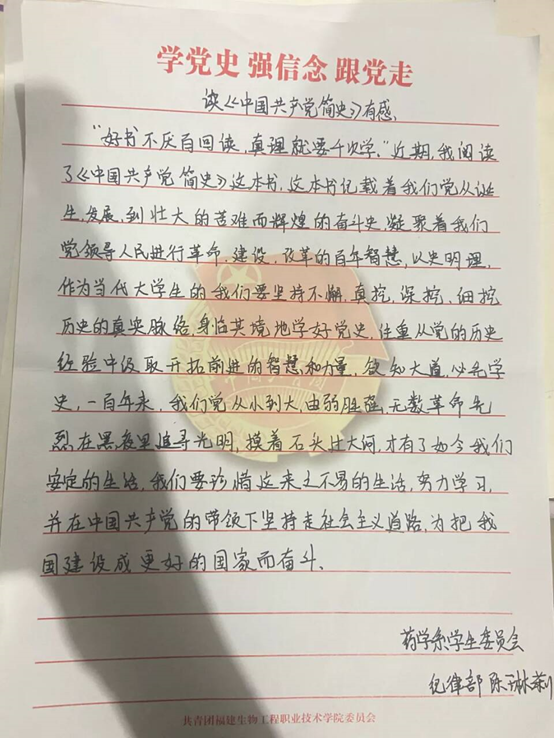 学党史 强信念 跟党走
读《中国共产党简史》有感、
“好书不厌百回读，真理就要千次学、”近期，我阅读
了《中国共产党简史》这本书，这本书记载着我们党从诞
生、发展、到壮大的苦难而辉煌的奋斗史凝聚着我们
党领导人民进行革命，建设，改革的百年智慧，以史明理，
作为当代大学生的我们要坚持不懈，真挖，深挖、细挖
历史的真实脉络，身临其境地学好党史，注重从党的历史
经验中汲取开拓前进的智慧和力量，欲知大道，必先学
史，一百年来，我们党从小到大，由弱胜强，无数革命先
烈在黑夜里追寻光明，摸着石头过大河，才有了如今我们
安定的生活，我们要珍惜这来之不易的生活，努力学习，
并在中国共产党的带领下坚持走社会主义道路，为把我
国建设成更好的国家而奋斗、
药学系学生委员会
纪律部 陈琳
共青团福建生物工程职业技术学院委员会